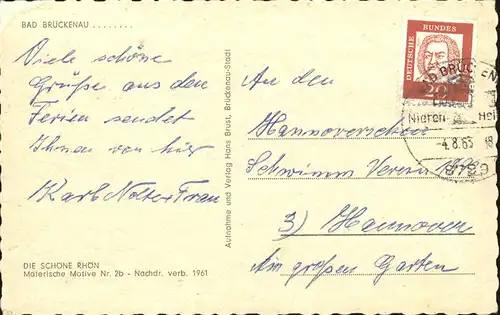 BAD BRÜCKENAU ........
Viele schöne
Grüße aus den
Ferien sendet
Ihnen von hier
Karl Nolte + Frau
DIE SCHÖNE RHÖN
Malerische Motive Nr. 2b - Nachdr. verb. 1961
Aufnahme und Verlag Hans Brust, Brückenau-Stadt
DEUTSCHE BUNDES
20
BAD BRÜCKEN
Nieren Hei
-4.8.63 18
8789
An den
Hannoverschen
Schwimm Verein 1892
3) Hannover
Am großen Garten